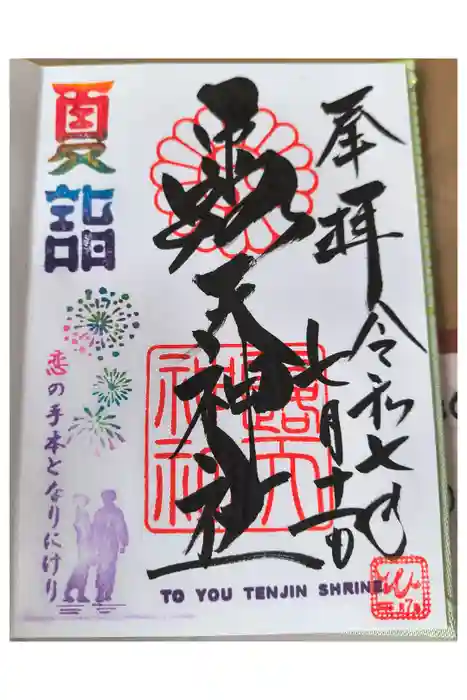 奉拝 令和七年
七月十一日
露天神社
露天
神社
夏詣
恋の手本となりにけり
TO YOU TENJIN SHRINE